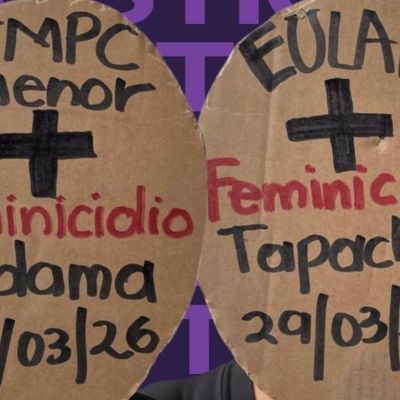 MPC
menor
+
inicidio
dama
/03/26
EULA
+
Feminic
Tapach
29/03/